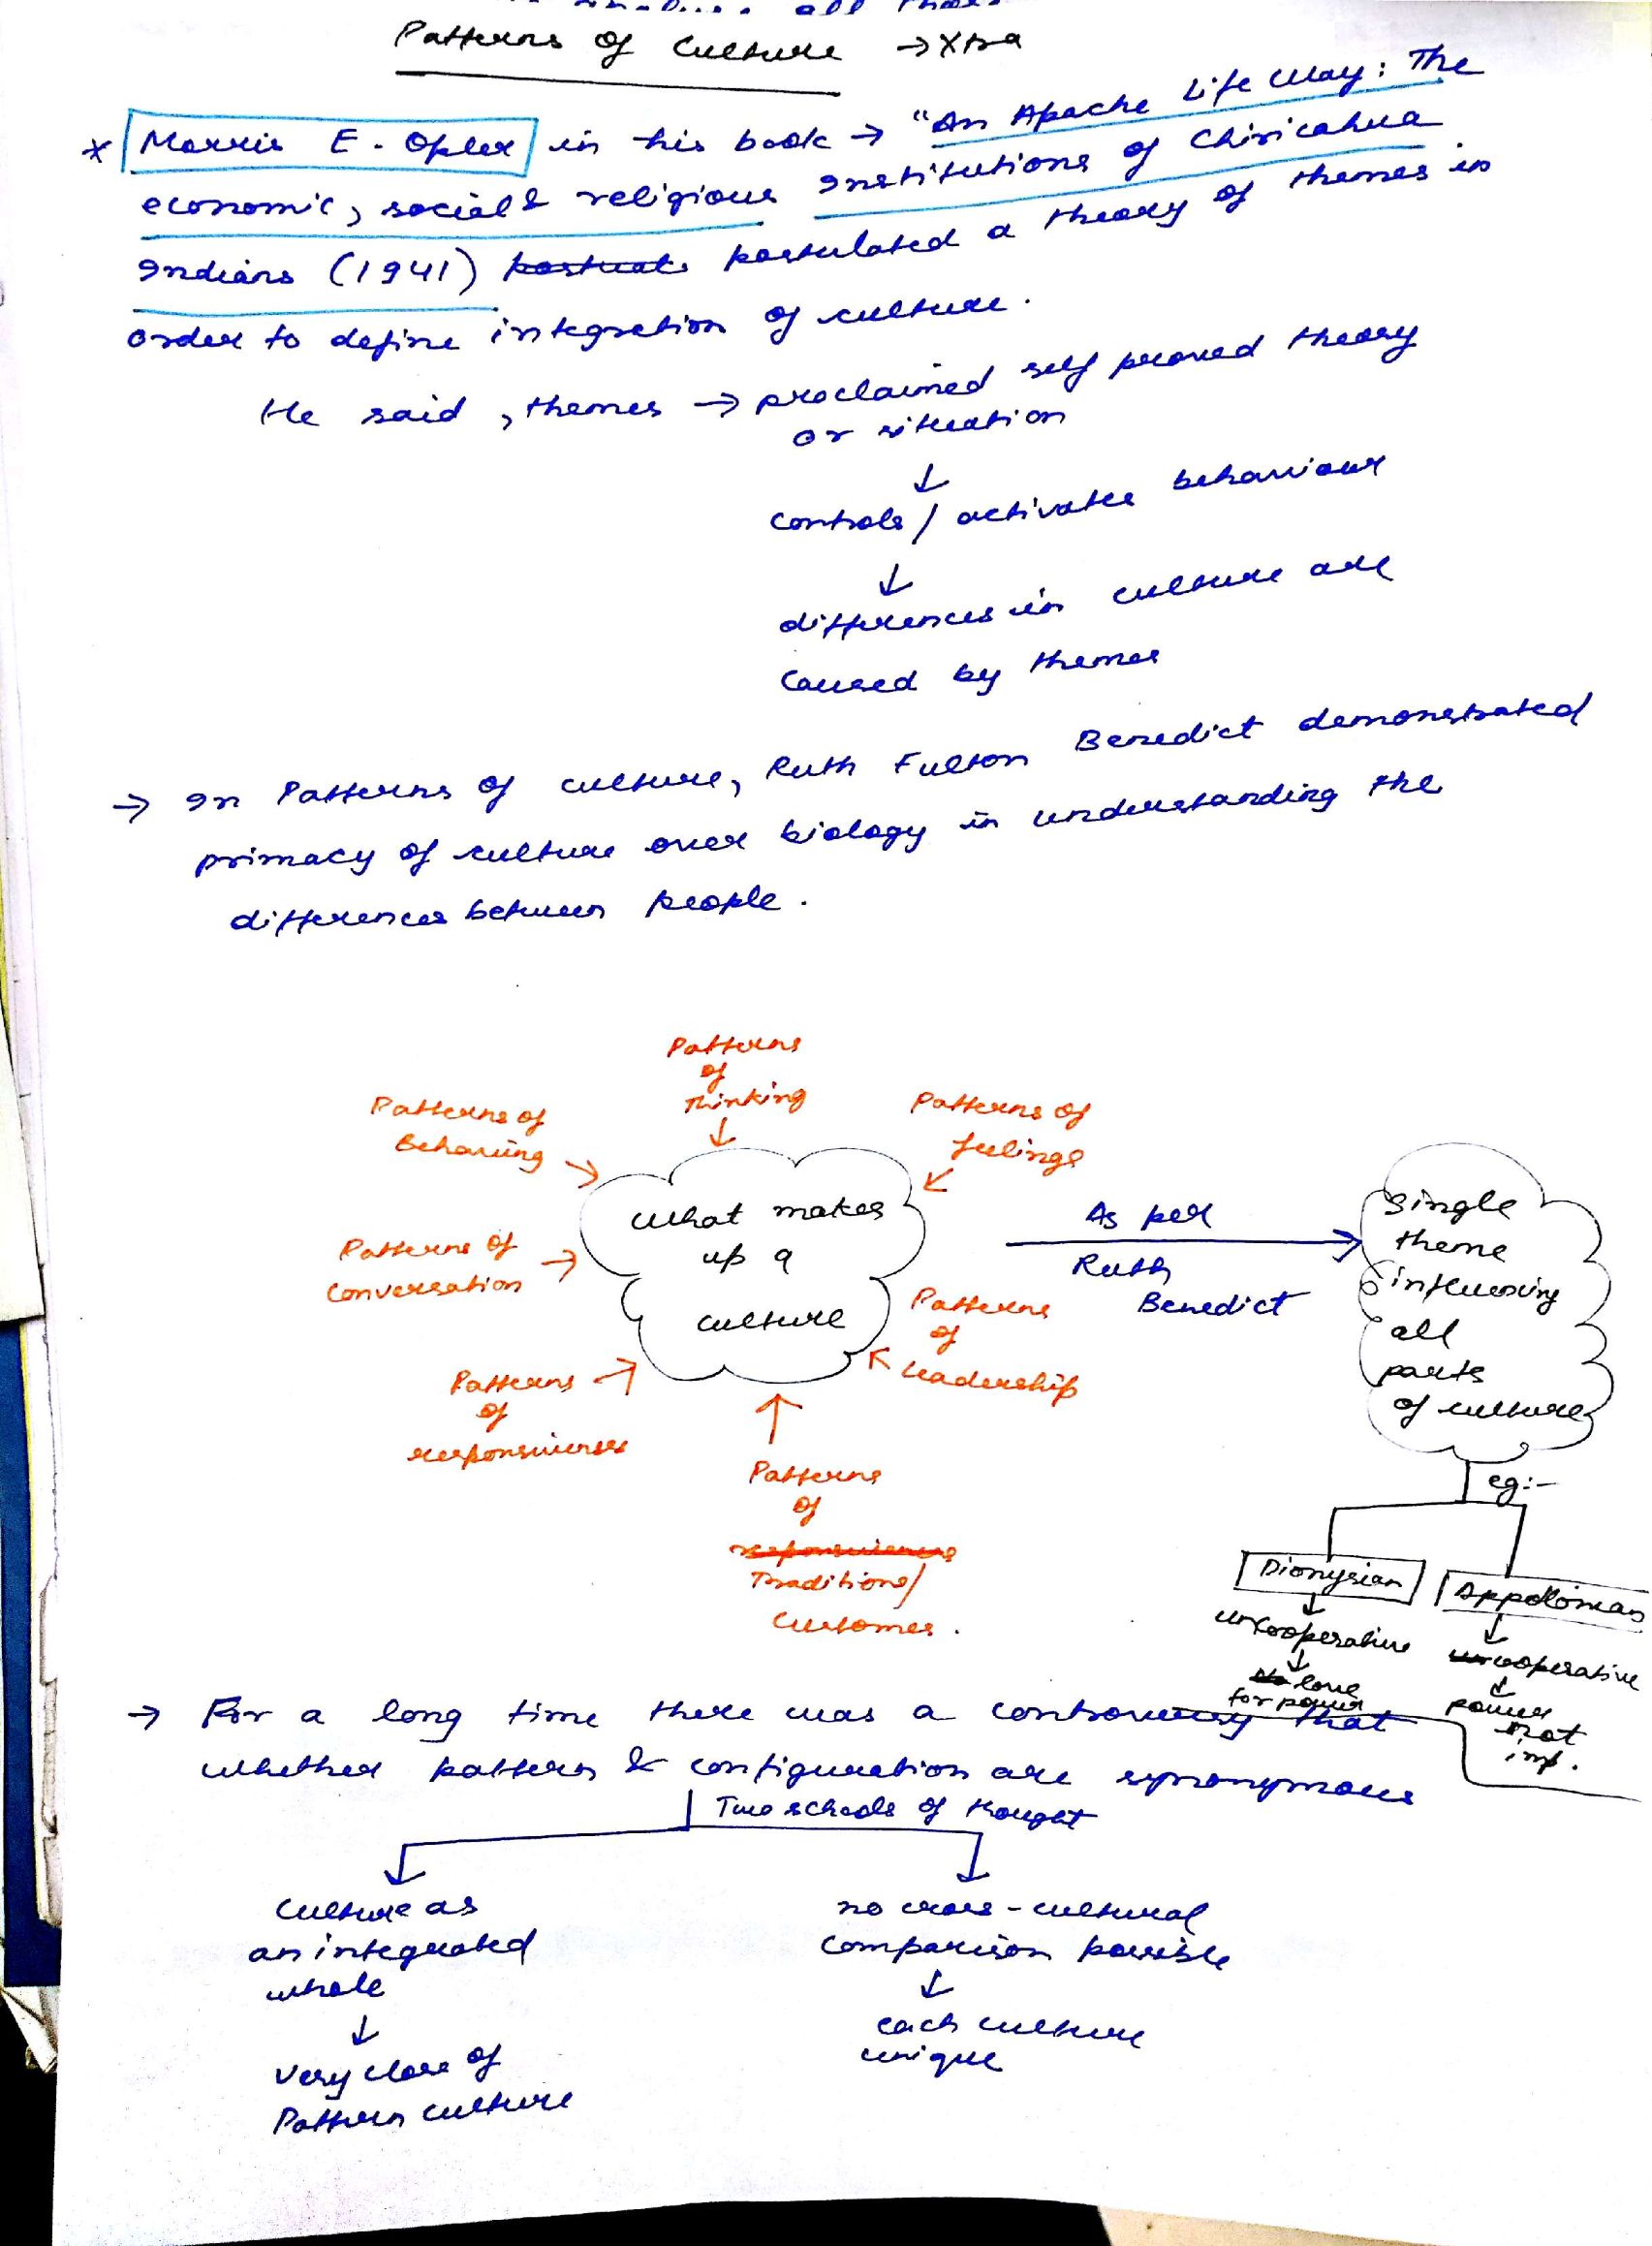 all
Patterns of Culture → Xtra
* Morris E. Opler in his book → "An Apache Life Way: The
economic, social & religious Institutions of Chiricahua
Indians (1941) postulated a theory of themes in
order to define integration of culture.
He said, themes → proclaimed self proved theory
or situation
↓
controls / activates behaviour
↓
differences in culture are
caused by themes
→ In Patterns of culture, Ruth Fulton Benedict demonstrated
primacy of culture over biology in understanding the
differences between people.
Patterns
of
Thinking
↓
Patterns of
Behaving →
Patterns of
feelings
↙
What makes
up a
culture
Patterns of
conversation →
Patterns →
of
responsiveness
Patterns
of
Leadership
↑
Patterns
of
responsiveness
Traditions/
Customes.
As per
Ruth
Benedict
→
single
theme
influencing
all
parts
of culture
eg:-
Dionysian
↓
uncooperative
↓
love
for power
Appollonian
↓
cooperative
↓
power
not
imp.
→ For a long time there was a controversy that
whether pattern & configuration are synonymous
Two schools of thought
culture as
an integrated
whole
↓
very close of
Pattern culture
no cross-cultural
comparison possible
↓
each culture
unique